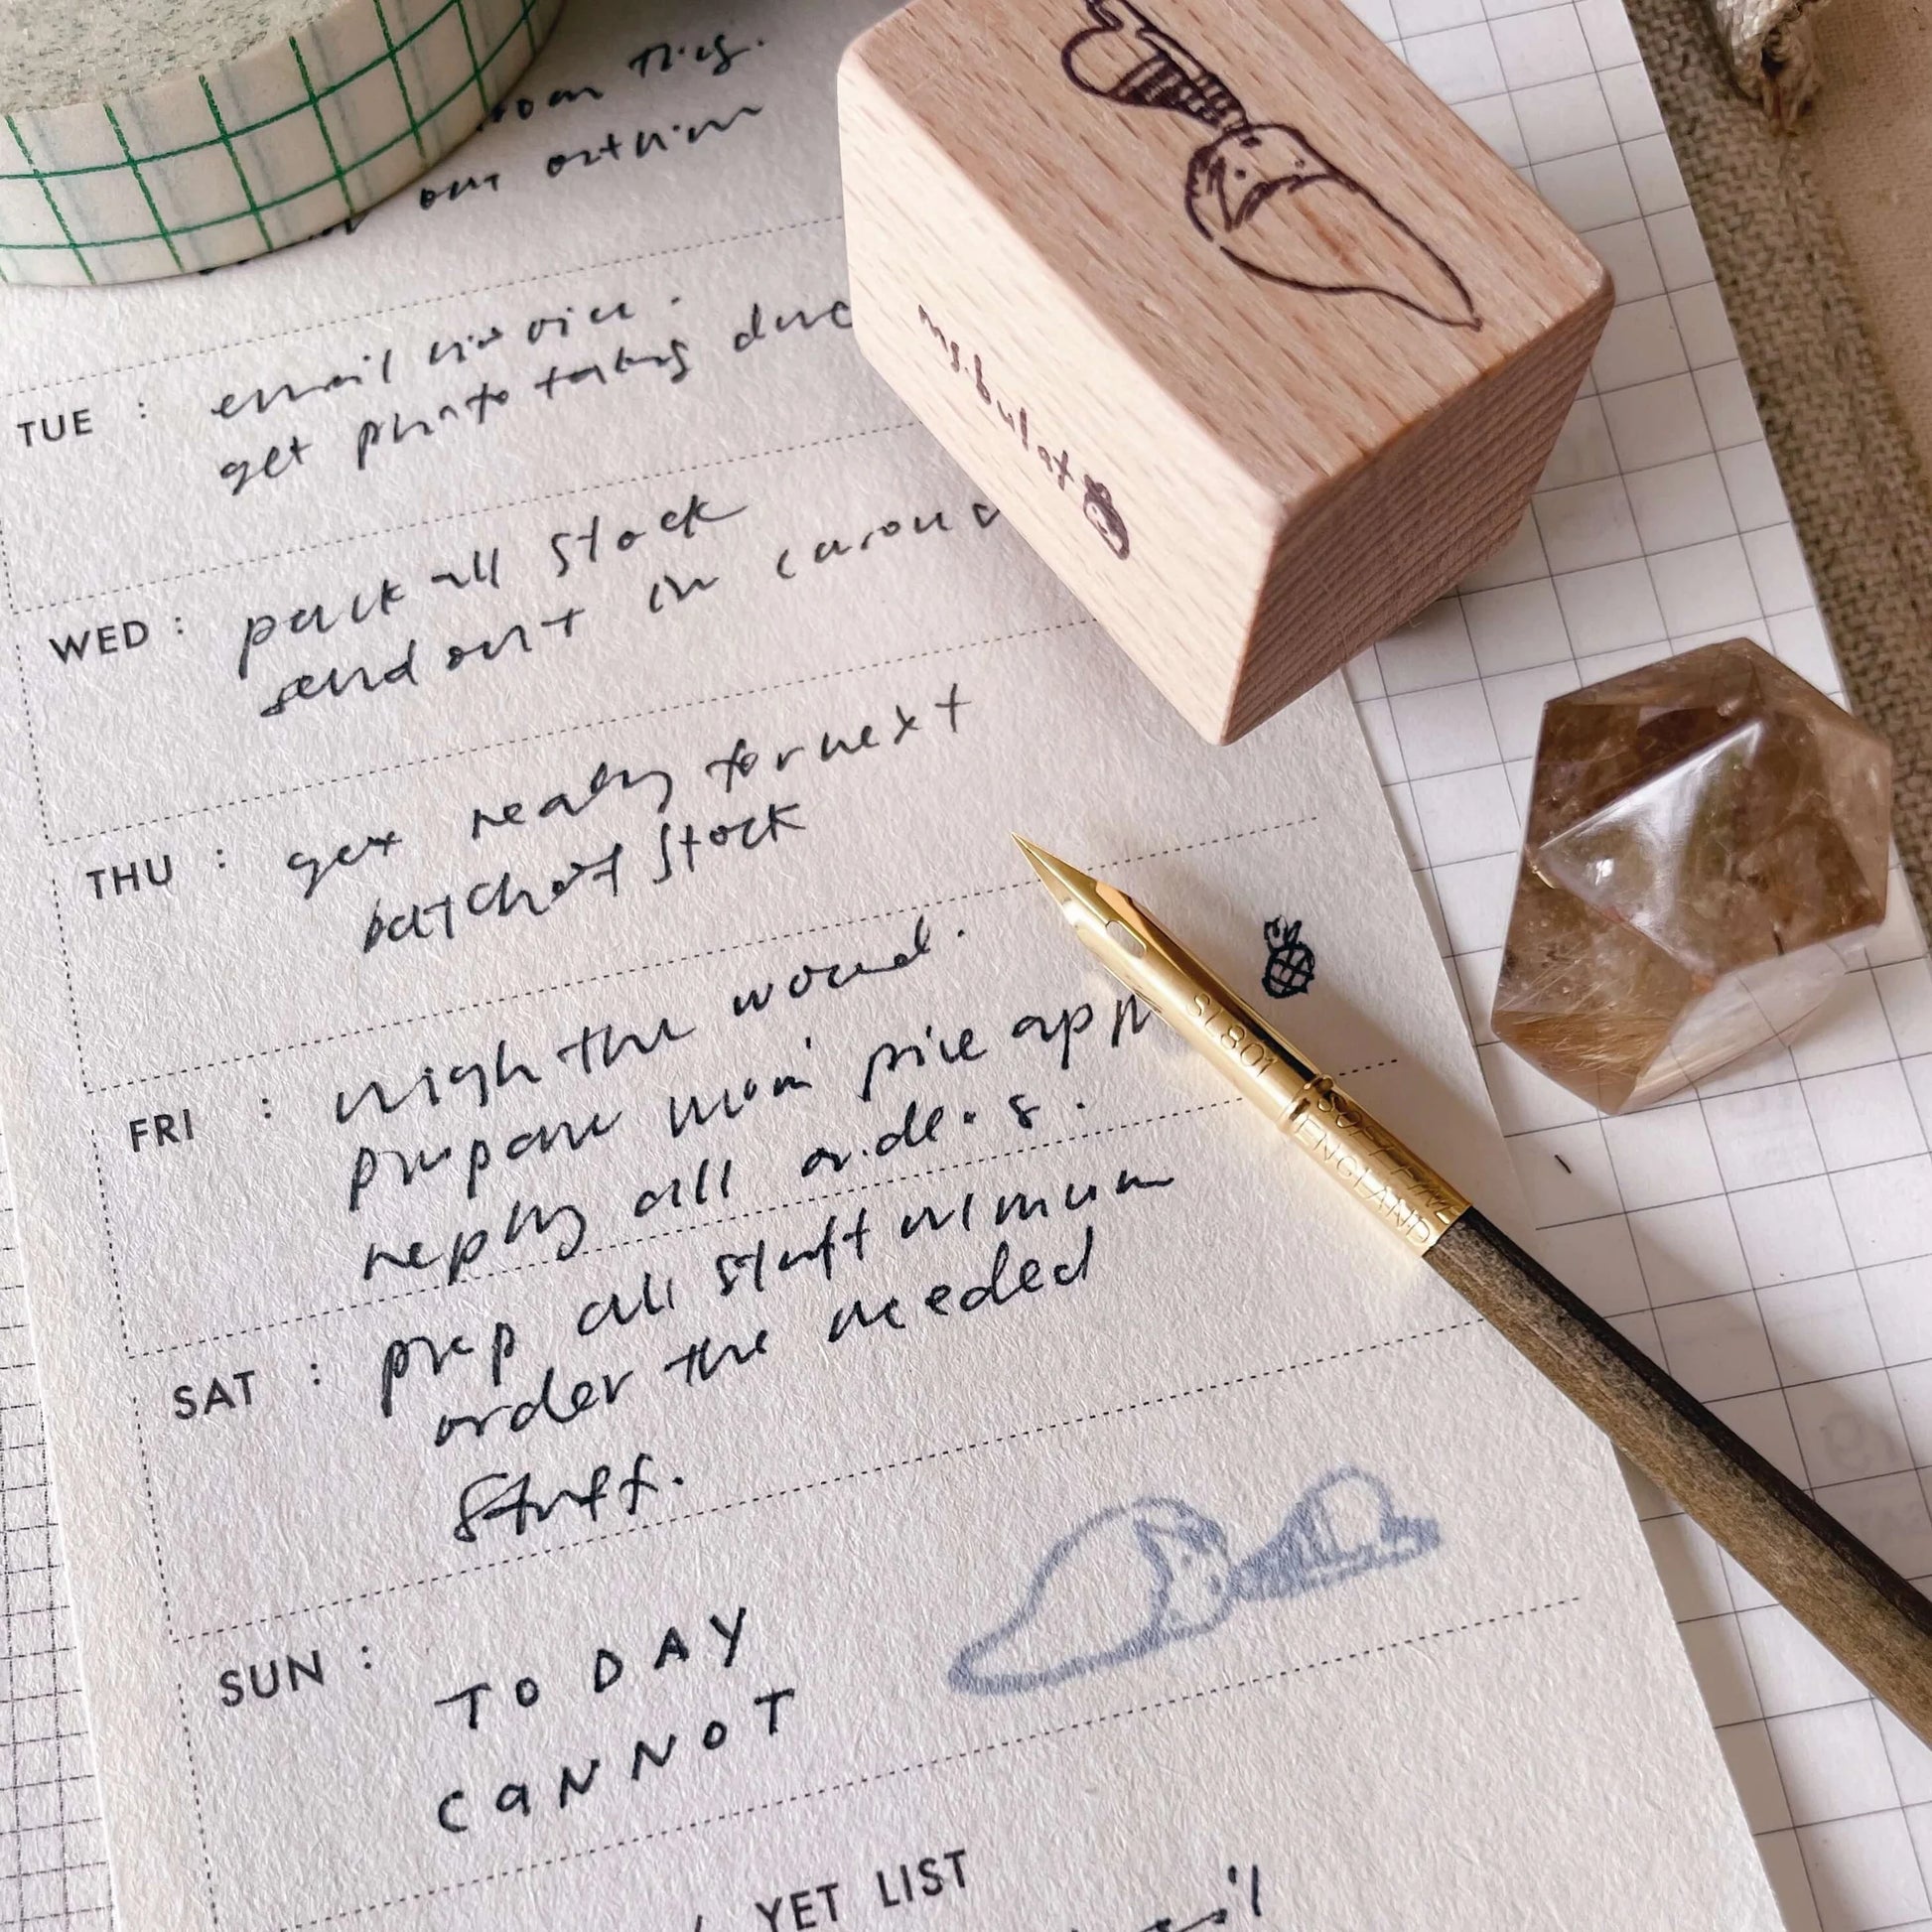 out
TUE : email invoice.
get photo taking
WED : pack all stock
send out in
THU : get ready for next
batch of stock
FRI : weigh the wood.
prepare mom' pine
reply all orders.
SAT : prep all stuff w/ mum
order the needed
stuff.
SUN : TODAY
CANNOT
YET LIST
ms.bulat
S1801
SOFT FINE
ENGLAND